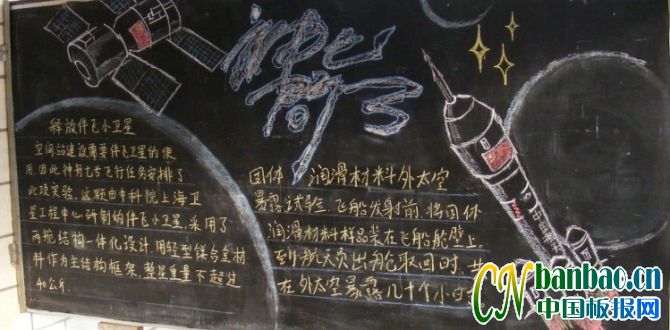 神七
问
了
释放伴飞小卫星
空间站建设需要伴飞卫星的使
用,因此神舟七号飞行任务安排了
此项实验。这颗由中科院上海卫
星工程中心研制的伴飞小卫星,采用了
两舱结构一体化设计,用轻型镁合金材
料作为主结构框架,整星重量不超过
40公斤.
固体 润滑材料外太空
暴露试验 飞船发射前,将固体
润滑材料样品装在飞船舱壁上,
到航天员出舱取回时,共
在外太空暴露几十个小时
中国航天
CN banbao.cn
中国板报网